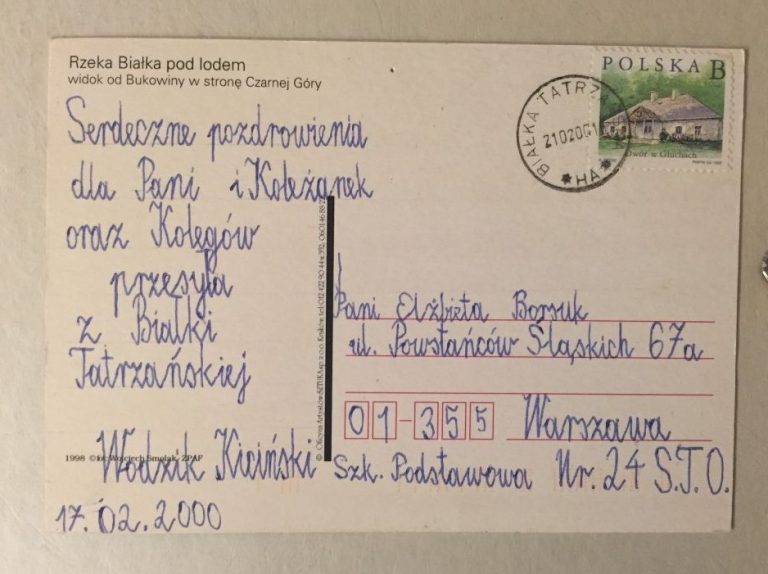 Rzeka Białka pod lodem
widok od Bukowiny w stronę Czarnej Góry
POLSKA B
Dwór w Głuchach
BIAŁKA TATRZ.
210200-1
*HA*
Serdeczne pozdrowienia
dla Pani i Koleżanek
oraz Kolegów
przesyła
z Białki
Tatrzańskiej
Włodzik Kiciński
17. 02. 2000
1998 © fot. Wojciech Smolak, ZPAF
Pani Elżbieta Borsuk
ul. Powstańców Śląskich 67a
01-355 Warszawa
Szk. Podstawowa Nr. 24 S.T.O.